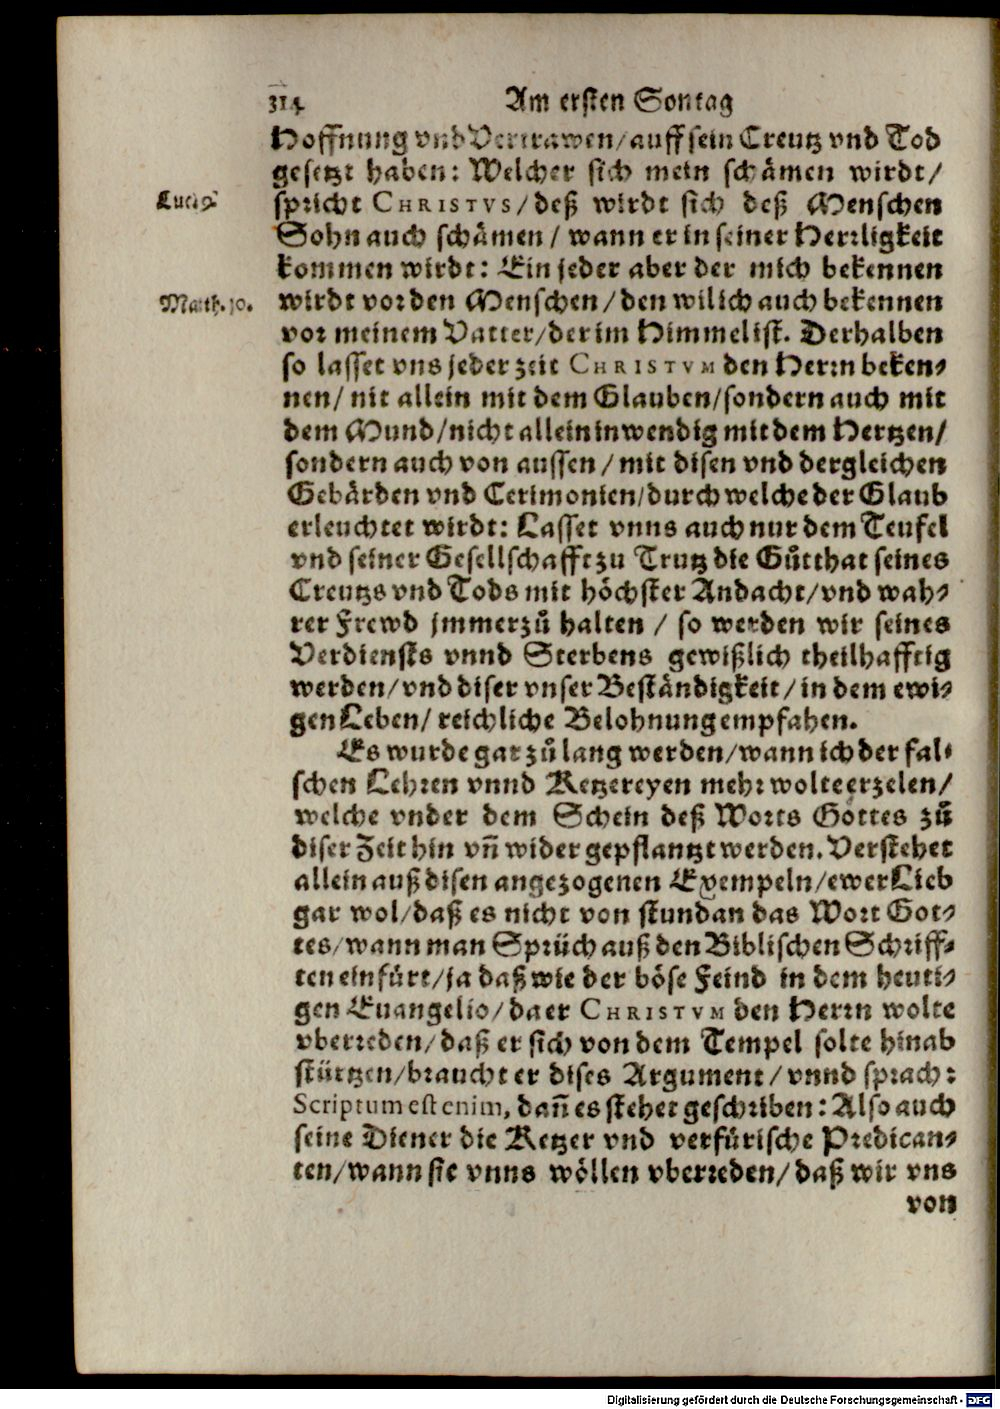 314 Am ersten Sontag
Hoffnung vnd Vertrawen/auff sein Creutz vnd Tod
gesetzt haben: Welcher sich mein schämen wirdt/
Luc. 9.
spricht CHRISTVS/deß wirdt sich deß Menschen
Sohn auch schämen/ wann er in seiner Herrligkeit
kommen wirdt: Ein jeder aber der mich bekennen
Matth. 10.
wirdt vor den Menschen/den wil ich auch bekennen
vor meinem Vatter/der im Himmel ist. Derhalben
so lasset vns jeder zeit CHRISTVM den Herrn beken-
nen/ nit allein mit dem Glauben/sondern auch mit
dem Mund/nicht allein inwendig mit dem Hertzen/
sondern auch von aussen/mit disen vnd dergleichen
Gebärden vnd Cerimonien/durch welche der Glaub
erleuchtet wirdt: Lasset vnns auch nur dem Teufel
vnd seiner Gesellschafft zu Trutz die Gůtthat seines
Creutzs vnd Tods mit höchster Andacht/vnd wah-
rer Frewd jmmerzů halten / so werden wir seines
Verdiensts vnnd Sterbens gewißlich theilhafftig
werden/vnd diser vnser Beständigkeit/in dem ewi-
gen Leben/ reichliche Belohnung empfahen.
Es wurde gar zů lang werden/wann ich der fal-
schen Lehren vnnd Ketzereyen mehr wolte erzelen/
welche vnder dem Schein deß Worts Gottes zů
diser Zeit hin vñ wider gepflantzt werden. Verstehet
allein auß disen angezogenen Exempeln/ewer Lieb
gar wol/daß es nicht von stundan das Wort Got-
tes/wann man Sprüch auß den Biblischen Schriff-
ten einfürt/ja daß wie der böse Feind in dem heuti-
gen Euangelio/da er CHRISTVM den Herrn wolte
vberreden/daß er sich von dem Tempel solte hinab
stürtzen/braucht er dises Argument/vnnd sprach:
Scriptum est enim, dañ es stehet geschriben: Also auch
seine Diener die Ketzer vnd verfürische Predican-
ten/wann sie vnns wöllen vberreden/daß wir vns
von
Digitalisierung gefördert durch die Deutsche Forschungsgemeinschaft - DFG